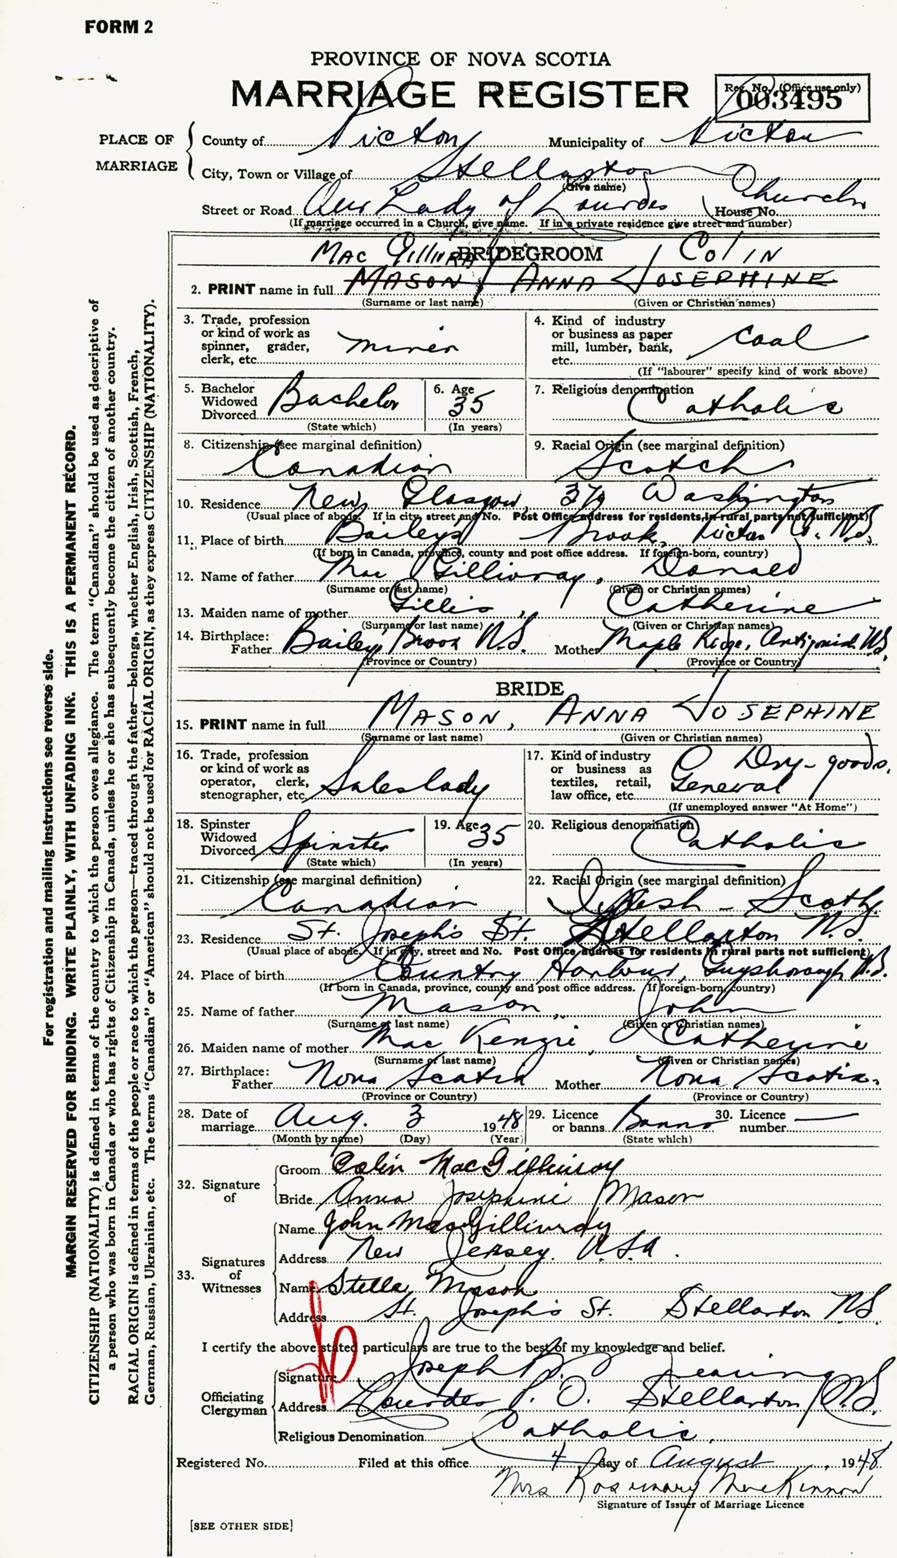 FORM 2
PROVINCE OF NOVA SCOTIA
MARRIAGE REGISTER
Reg. No. (Office use only)
003495
PLACE OF MARRIAGE
County of Pictou Municipality of Pictou
City, Town or Village of Stellarton
(Give name)
Street or Road Our Lady of Lourdes Church House No.
(If marriage occurred in a Church, give name. If in a private residence give street and number)
BRIDEGROOM
Mac Gillivray, COLIN
2. PRINT name in full MASON, ANNA JOSEPHINE
(Surname or last name) (Given or Christian names)
3. Trade, profession or kind of work as spinner, grader, clerk, etc. miner
4. Kind of industry or business as paper mill, lumber, bank, etc. Coal
(If "labourer" specify kind of work above)
5. Bachelor Widowed Divorced Bachelor
(State which)
6. Age 35
(In years)
7. Religious denomination Catholic
8. Citizenship (see marginal definition) Canadian
9. Racial Origin (see marginal definition) Scotch
10. Residence New Glasgow, 370 Washington
(Usual place of abode. If in city, street and No. Post Office address for residents in rural parts not sufficient)
11. Place of birth Baileys Brook, Pictou Co. N.S.
(If born in Canada, province, county and post office address. If foreign-born, country)
12. Name of father Mac Gillivray, Donald
(Surname or last name) (Given or Christian names)
13. Maiden name of mother Gillis, Catherine
(Surname or last name) (Given or Christian names)
14. Birthplace: Father Bailey Brook N.S. Mother Maple Ridge, Antigonish N.S.
(Province or Country) (Province or Country)
BRIDE
15. PRINT name in full MASON, ANNA JOSEPHINE
(Surname or last name) (Given or Christian names)
16. Trade, profession or kind of work as operator, clerk, stenographer, etc. Saleslady
17. Kind of industry or business as textiles, retail, law office, etc. Dry-goods, General
(If unemployed answer "At Home")
18. Spinster Widowed Divorced Spinster
(State which)
19. Age 35
(In years)
20. Religious denomination Catholic
21. Citizenship (see marginal definition) Canadian
22. Racial Origin (see marginal definition) Irish - Scotch
23. Residence St. Joseph's St. Stellarton N.S.
(Usual place of abode. If in city, street and No. Post Office address for residents in rural parts not sufficient)
24. Place of birth Country Harbour, Guysborough N.S.
(If born in Canada, province, county and post office address. If foreign-born, country)
25. Name of father Mason, John
(Surname or last name) (Given or Christian names)
26. Maiden name of mother Mac Kenzie, Catherine
(Surname or last name) (Given or Christian names)
27. Birthplace: Father Nova Scotia Mother Nova Scotia.
(Province or Country) (Province or Country)
28. Date of marriage Aug. 3 1948
(Month by name) (Day) (Year)
29. Licence or banns Banns
(State which)
30. Licence number —
32. Signature of
Groom Colin MacGillivray
Bride Anna Josephine Mason
33. Signatures of Witnesses
Name John MacGillivray
Address New Jersey. U.S.A.
Name Stella Mason
Address St. Joseph's St. Stellarton N.S.
I certify the above stated particulars are true to the best of my knowledge and belief.
Officiating Clergyman
Signature Joseph
Address Lourdes P.O. Stellarton, N.S.
Religious Denomination Catholic.
Registered No. Filed at this office 4 day of August, 1948
Mrs Rosemary MacKinnon
Signature of Issuer of Marriage Licence
[SEE OTHER SIDE]
For registration and mailing instructions see reverse side.
MARGIN RESERVED FOR BINDING. WRITE PLAINLY, WITH UNFADING INK. THIS IS A PERMANENT RECORD.
CITIZENSHIP (NATIONALITY) is defined in terms of the country to which the person owes allegiance. The term "Canadian" should be used as descriptive of
a person who was born in Canada or who has rights of Citizenship in Canada, unless he or she has subsequently become the citizen of another country.
RACIAL ORIGIN is defined in terms of the people or race to which the person—traced through the father—belongs, whether English, Irish, Scottish, French,
German, Russian, Ukrainian, etc. The terms "Canadian" or "American" should not be used for RACIAL ORIGIN, as they express CITIZENSHIP (NATIONALITY).